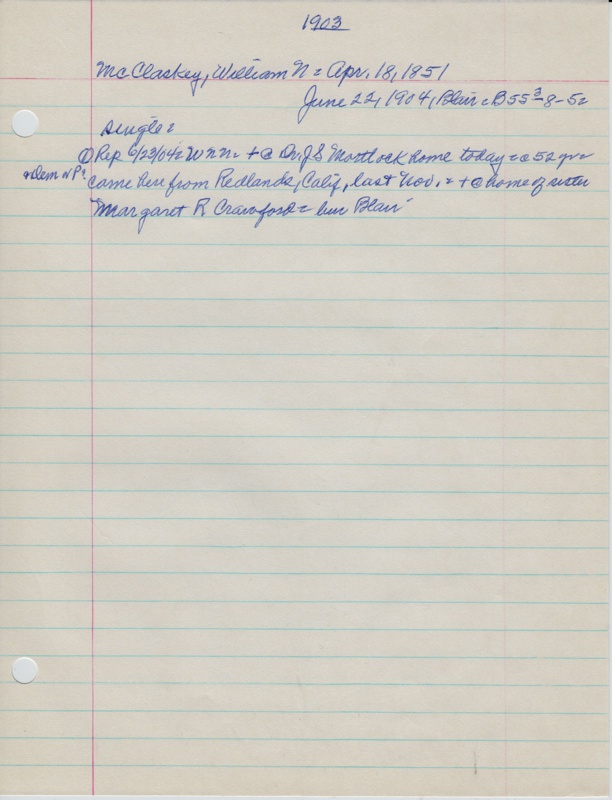 1903
McClaskey, William N = Apr. 18, 1851
June 22, 1904, Blair = B 55 3-8-5=
single =
① Rep 6/23/04 = W n n = + @ Dr. J S Mortlock home today = @ 52 yr =
nDem nP?
came here from Redlands, Calif, last Nov. = + @ home of sister
Margaret R Crawford = bur Blair